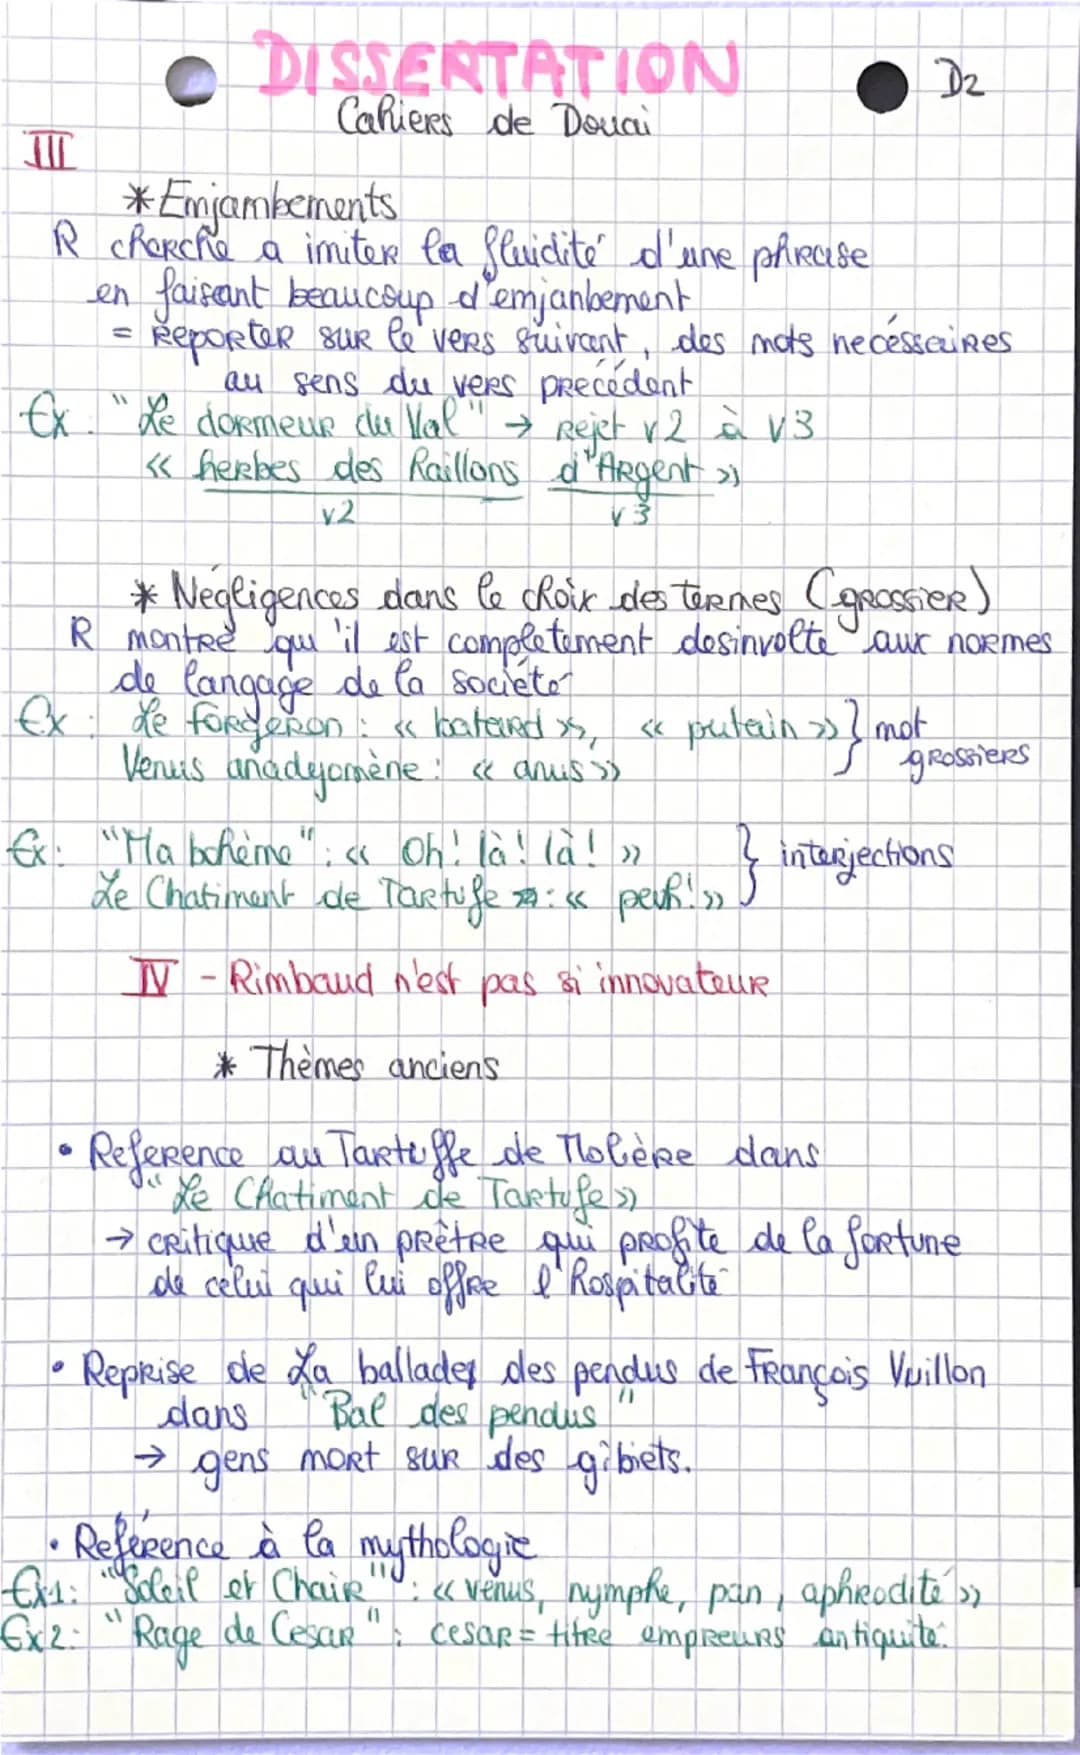 DISSERTATION
D2
Cahiers de Douai
III
* Emjambements
R cherche a imiter la fluidité d'une phrase
en faisant beaucoup d'emjanbement
= Reporter sur le vers suivant, des mots necéssaires
au sens du vers precédent
Ex : "Le dormeur du Val" → Rejet v2 à v3
« herbes des haillons d'Argent »
v2 v3
* Negligences dans le choix des termes (grossier)
R montre qu'il est completement desinvolte aux normes
de langage de la société
Ex : Le forgeron : « batard », « putain » } mot
grossiers
Venus anadyomène : « anus »
Ex : "Ma bohème" : « Oh! là! là! » } interjections
Le Chatiment de Tartufe : « peuh! »
IV - Rimbaud n'est pas si innovateur
* Thèmes anciens
• Reference au Tartuffe de Molière dans
"Le Chatiment de Tartufe »
→ critique d'un prêtre qui profite de la fortune
de celui qui lui offre l'hospitalité
• Reprise de La ballades des pendus de François Vuillon
dans "Bal des pendus"
→ gens mort sur des gibiets.
• Reférence à la mythologie
Ex1: "Soleil et Chair" : « venus, nymphe, pan, aphrodité »
Ex2: "Rage de Cesar" : cesar = titre empreurs antiquité.